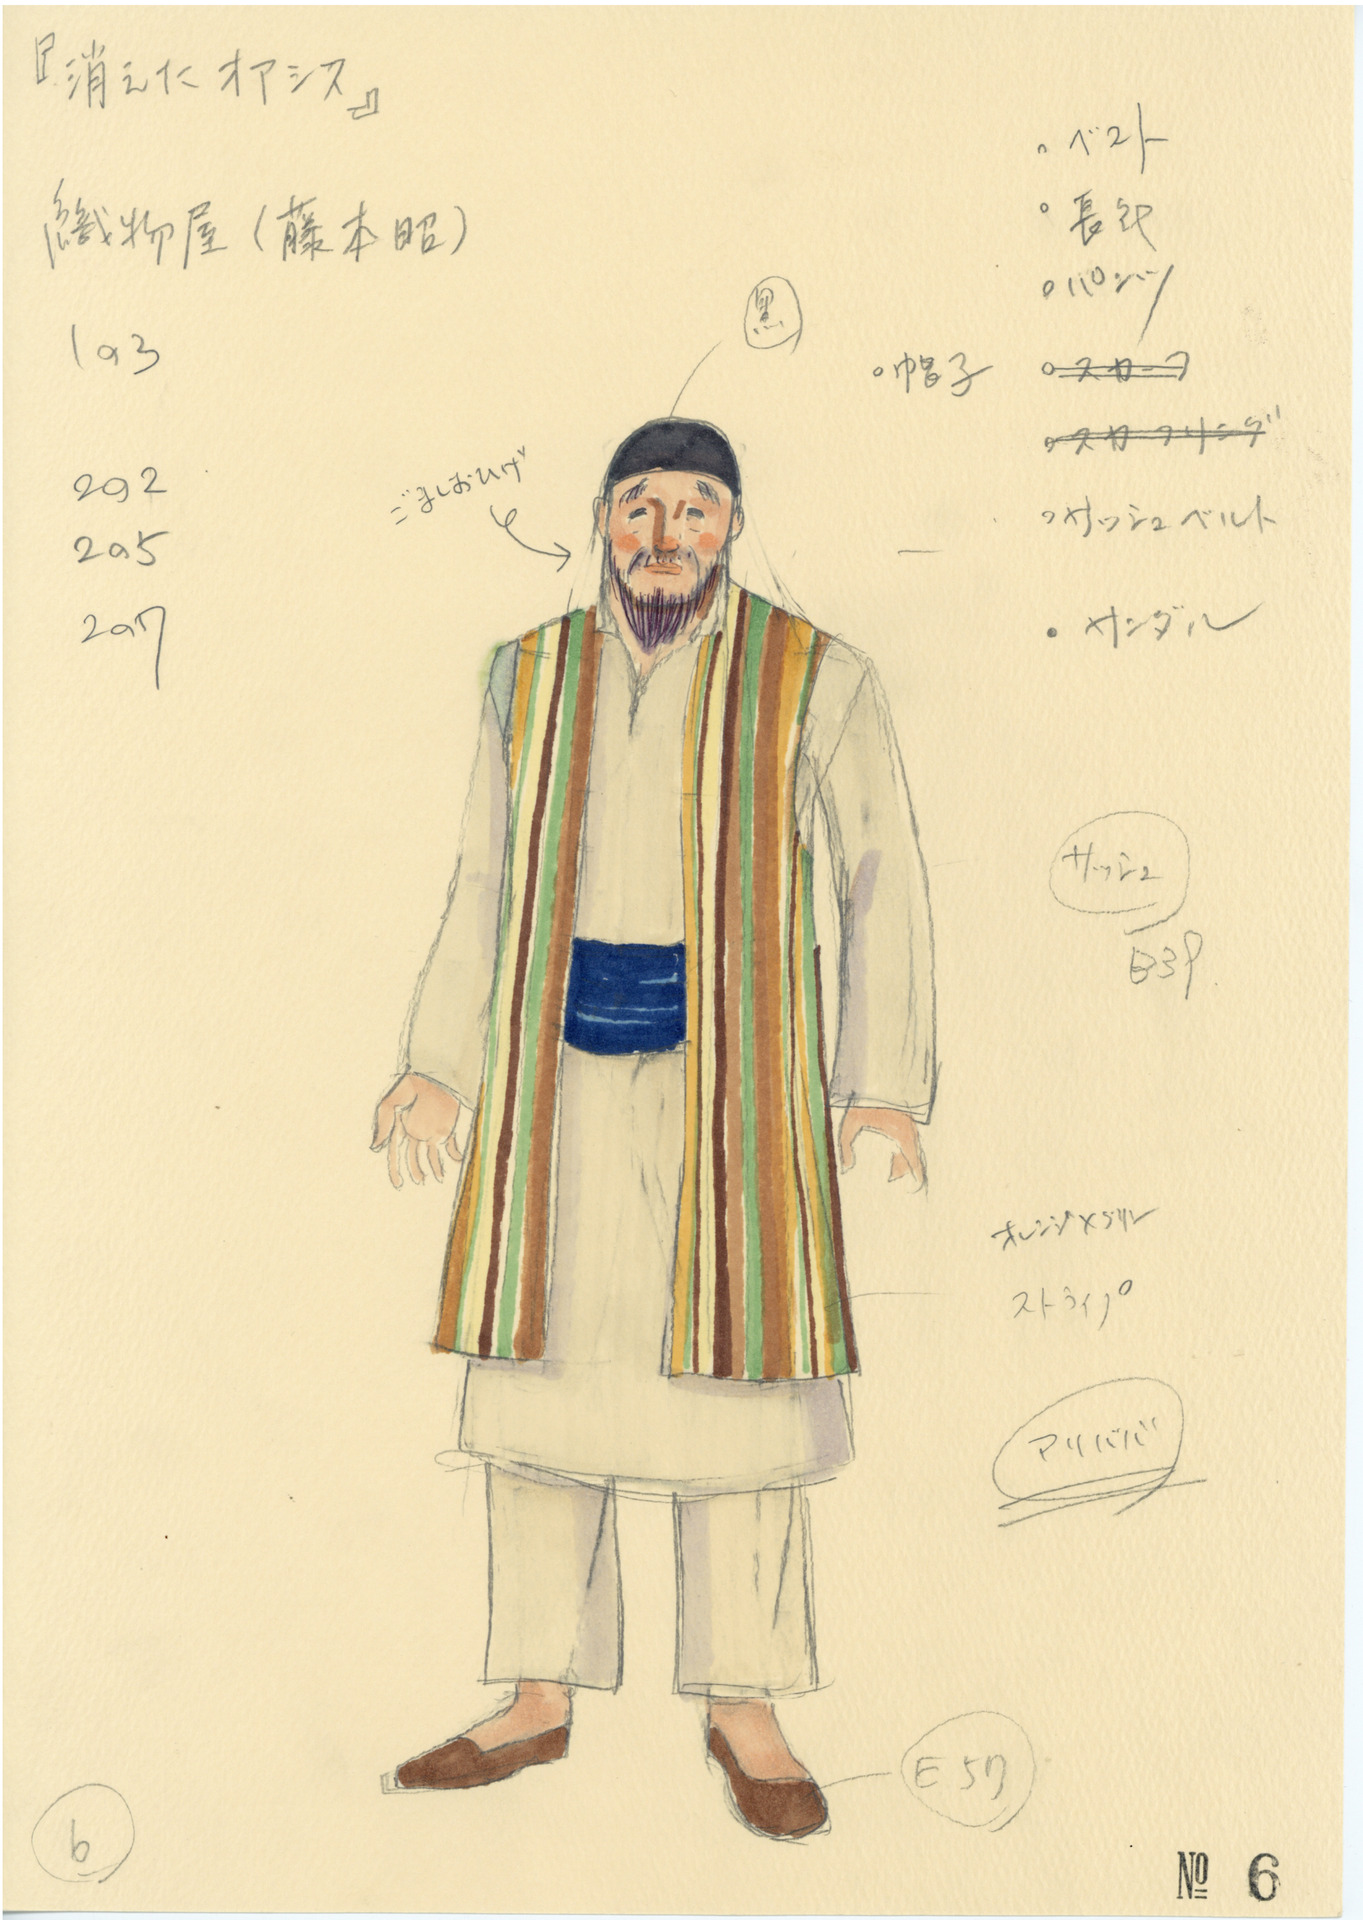 『消えたオアシス』
織物屋（藤本昭）
1の3
2の2
2の5
2の7
黒
ごましおひげ
・ベスト
・長衣
・パンツ
・帽子
・スカーフ
・スカーフリング
・サッシュベルト
・サンダル
サッシュ
B39
オレンジ×グリン
ストライプ
アリババ
E57
6
№ 6